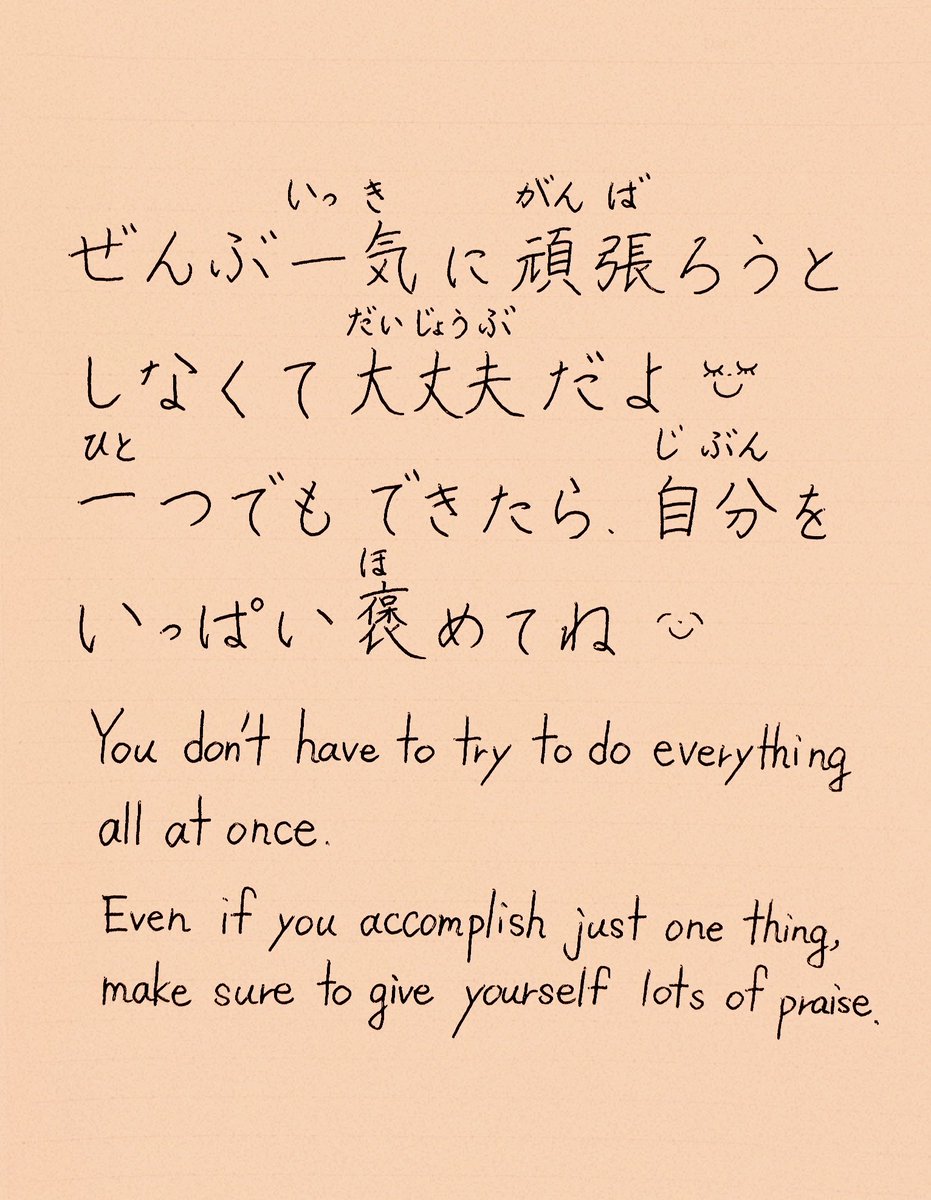 いっき がんば
ぜんぶ一気に頑張ろうと
だいじょうぶ
しなくて大丈夫だよ
ひと じぶん
一つでもできたら、自分を
ほ
いっぱい褒めてね
You don't have to try to do everything
all at once.
Even if you accomplish just one thing,
make sure to give yourself lots of praise.